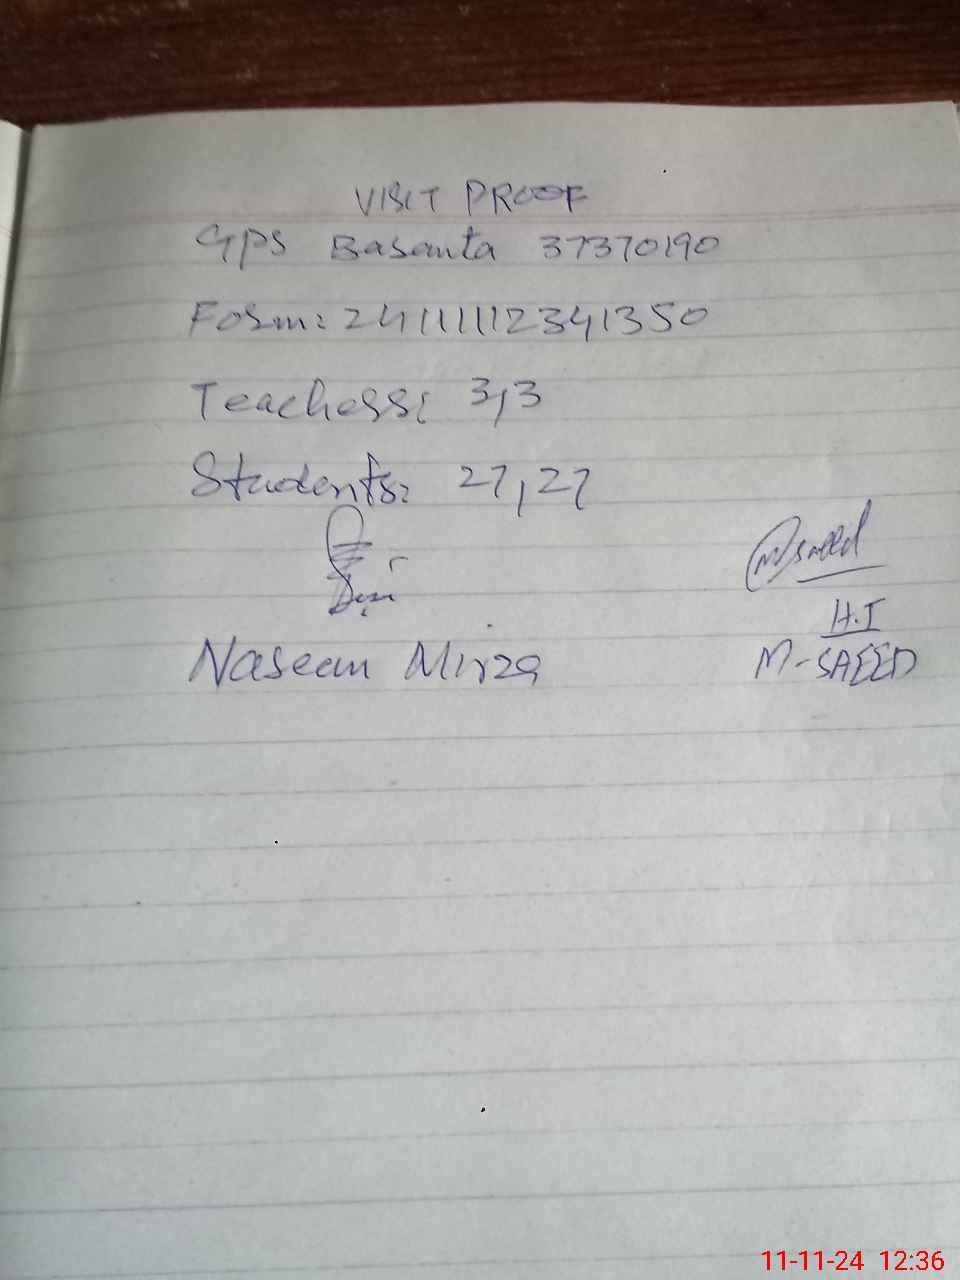 VISIT PROOF
GPS Basanta 37370190
Form: 24111112341350
Teachers: 3,3
Students: 27,27
M saeed
H.I
Naseem Mirza
M-SAEED
11-11-24 12:36